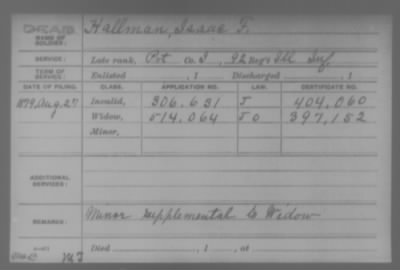 DEAD Hallman, Isaac F.
NAME OF SOLDIER:
SERVICE: Late rank, Pvt Co. I, 92 Reg't Ill Inf
TERM OF SERVICE: Enlisted , 1 Discharged , 1
DATE OF FILING. CLASS. APPLICATION NO. LAW. CERTIFICATE NO.
1879, Aug. 27 Invalid, 306,631 J 404,060
Widow, 514,064 J O 397,152
Minor,
ADDITIONAL SERVICES:
REMARKS: Minor supplemental to Widow
Died , 1 , at